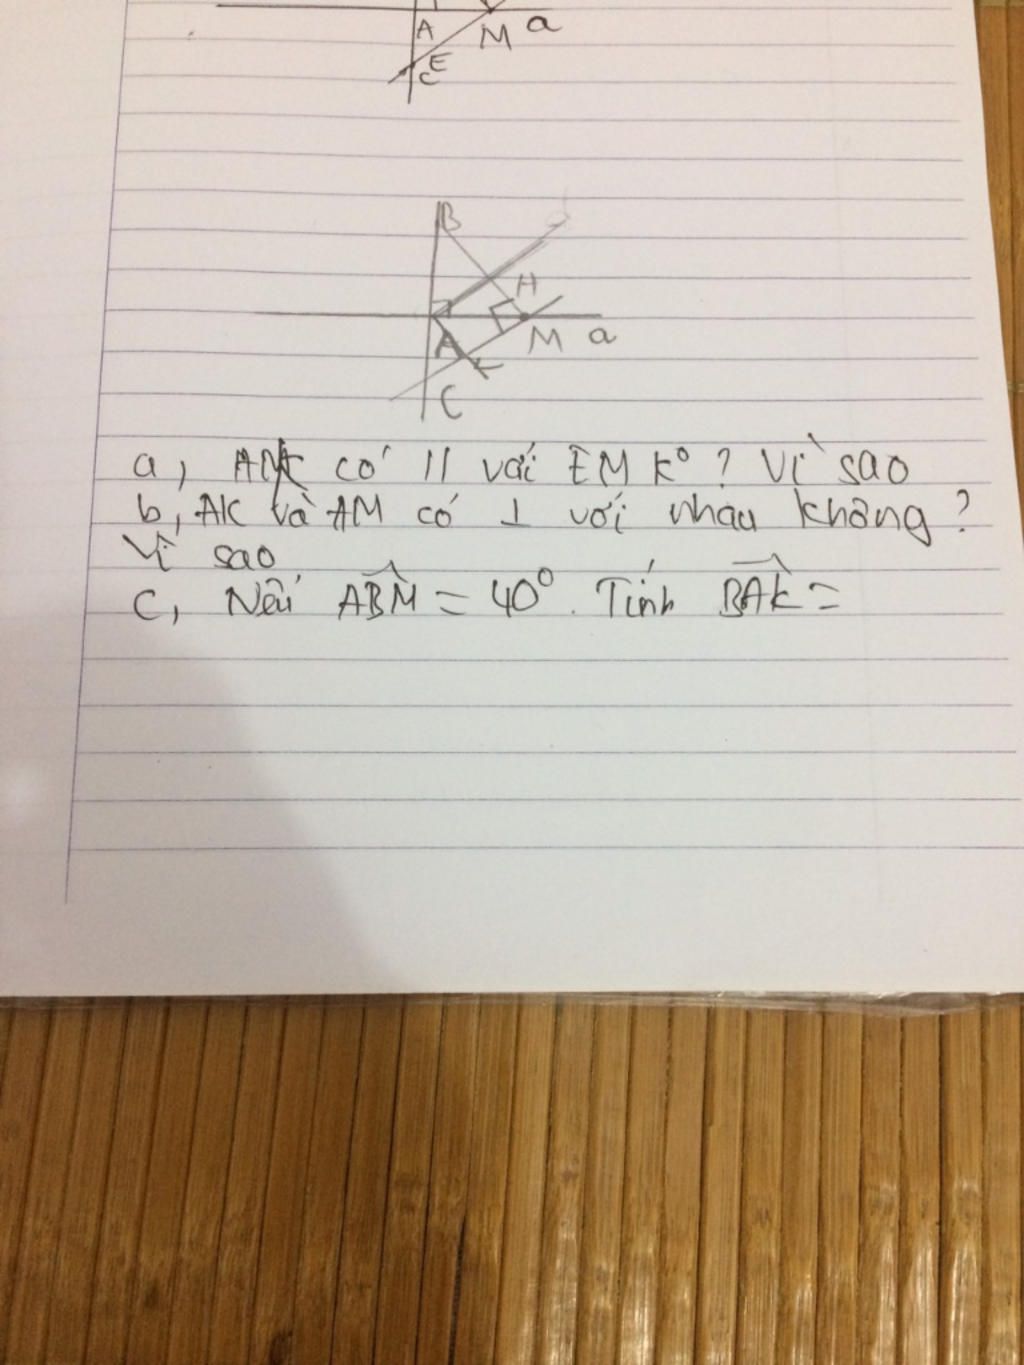 A M a
E
C
B d
H
A M a
K
C
a, AK có // với EM k° ? Vì sao
b, AK và AM có ⊥ với nhau không?
Vì sao
c, Nếu ABM = 40°. Tính BAK =